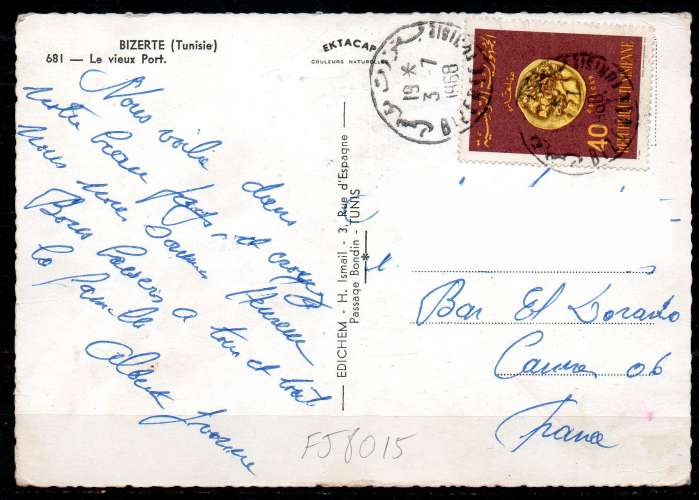 BIZERTE (Tunisie)
681 — Le vieux Port.
EKTACAP
COULEURS NATURELLES
Nous voilà dans
notre beau pays, et croyez
nous nous sommes heureux
Bons baisers a tous et tout
la famille
Albert Yvonne
EDICHEM - H. Ismail - 3, Rue d'Espagne
Passage Bondin - TUNIS
19 *
3 - 7
1968
BIZERTE
40
Bar El Dorado
Cannes 06
France
FJ8015